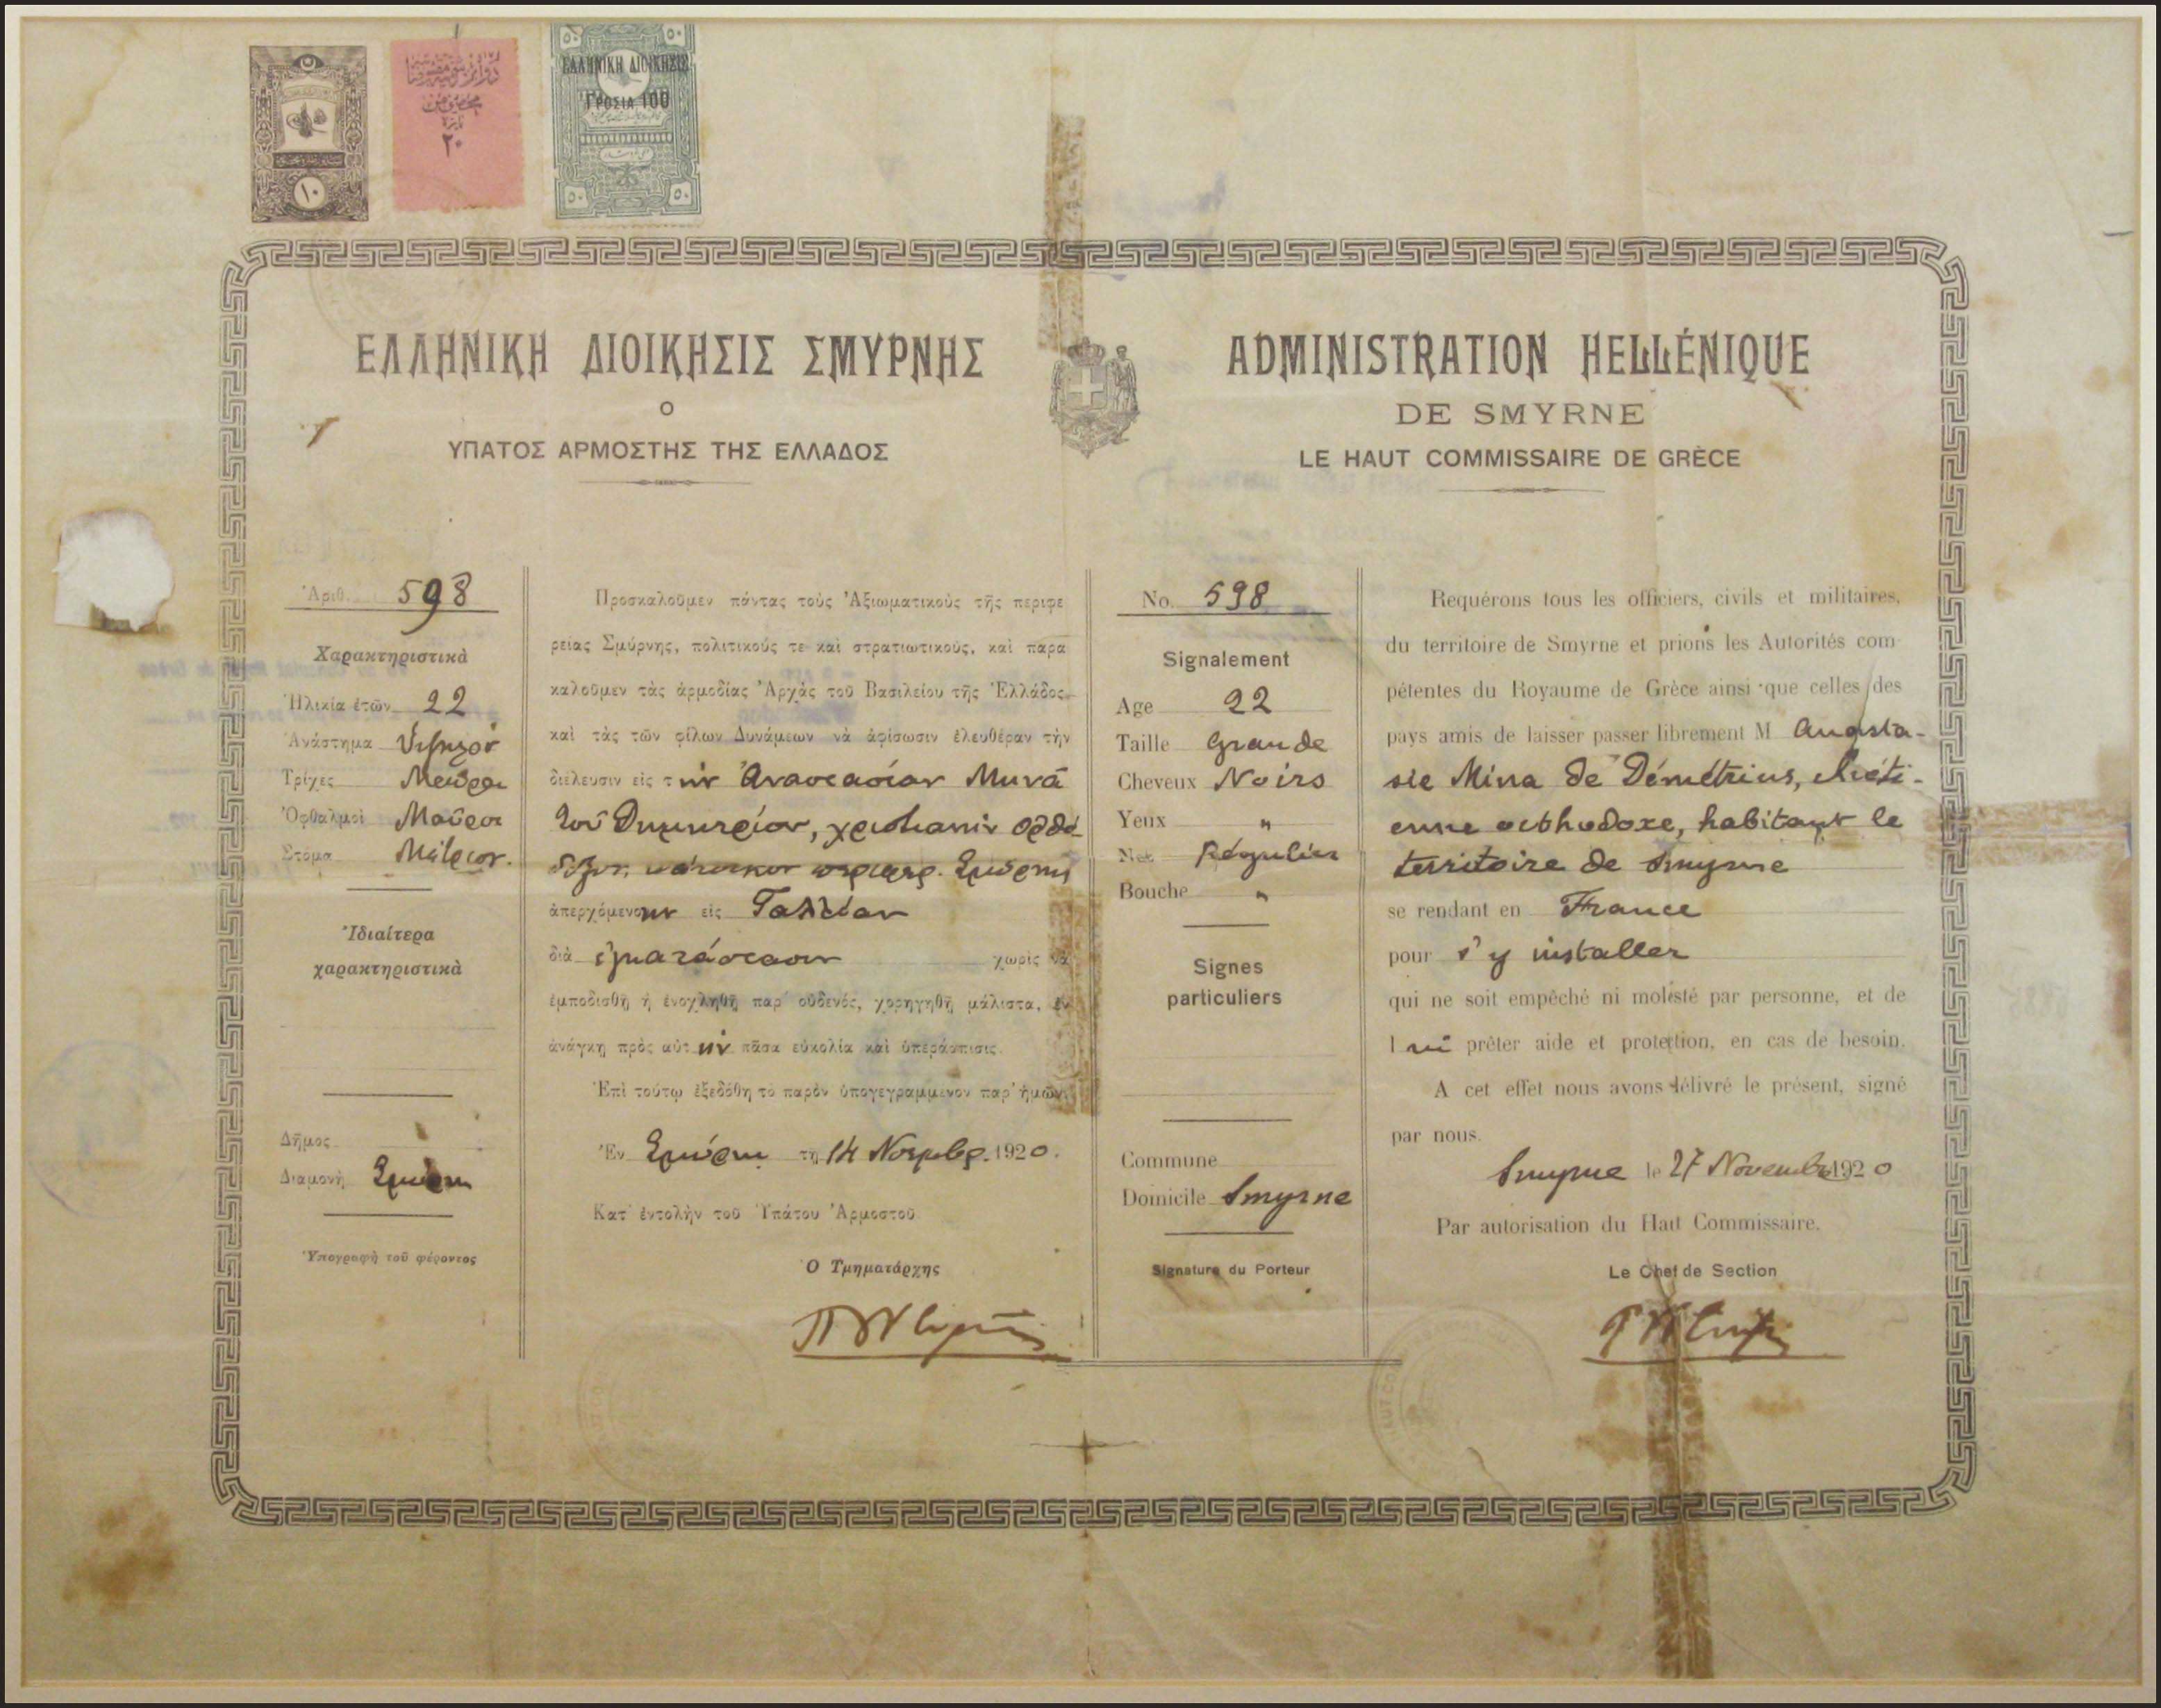 ΕΛΛΗΝΙΚΗ ΔΙΟΙΚΗΣΙΣ
ΓΡΟΣΙΑ 100
٢٠
١٠
٥٠ ٥٠
ΕΛΛΗΝΙΚΗ ΔΙΟΙΚΗΣΙΣ ΣΜΥΡΝΗΣ
Ο
ΥΠΑΤΟΣ ΑΡΜΟΣΤΗΣ ΤΗΣ ΕΛΛΑΔΟΣ
Ἀριθ. 598
Χαρακτηριστικὰ
Ἡλικία ἐτῶν 22
Ἀνάστημα Ὑψηλόν
Τρίχες Μαῦραι
Ὀφθαλμοὶ Μαῦροι
Στόμα Μέτριον.
Ἰδιαίτερα
χαρακτηριστικὰ
Δῆμος
Διαμονὴ Σμύρνη
Ὑπογραφὴ τοῦ φέροντος
Προσκαλοῦμεν πάντας τοὺς Ἀξιωματικοὺς τῆς περιφε
ρείας Σμύρνης, πολιτικούς τε καὶ στρατιωτικούς, καὶ παρα
καλοῦμεν τὰς ἁρμοδίας Ἀρχὰς τοῦ Βασιλείου τῆς Ἑλλάδος
καὶ τὰς τῶν φίλων Δυνάμεων νὰ ἀφίσωσιν ἐλευθέραν τὴν
διέλευσιν εἰς τὴν Ἀναστασίαν Μηνᾶ
τοῦ Δημητρίου, χριστιανὴν ὀρθό-
δοξον, κάτοικον περιφερ. Σμύρνης
ἀπερχόμενην εἰς Γαλλίαν
διὰ ἐγκατάστασιν χωρὶς νὰ
ἐμποδισθῇ ἢ ἐνοχληθῇ παρ' οὐδενός, χορηγηθῇ μάλιστα, ἐν
ἀνάγκῃ πρὸς αὐτὴν πᾶσα εὐκολία καὶ ὑπεράσπισις.
Ἐπὶ τούτῳ ἐξεδόθη τὸ παρὸν ὑπογεγραμμένον παρ' ἡμῶν.
Ἐν Σμύρνῃ τῇ 14 Νοεμβρ. 1920.
Κατ' ἐντολὴν τοῦ Ὑπάτου Ἁρμοστοῦ
Ὁ Τμηματάρχης
ADMINISTRATION HELLÉNIQUE
DE SMYRNE
LE HAUT COMMISSAIRE DE GRÈCE
No. 598
Signalement
Age 22
Taille Grande
Cheveux Noirs
Yeux "
Nez Régulier
Bouche "
Signes
particuliers
Commune
Domicile Smyrne
Signature du Porteur
Requérons tous les officiers, civils et militaires,
du territoire de Smyrne et prions les Autorités com-
pétentes du Royaume de Grèce ainsi que celles des
pays amis de laisser passer librement M Anasta-
sie Mina de Démétrius, chréti-
enne orthodoxe, habitant le
territoire de Smyrne
se rendant en France
pour s'y installer
qui ne soit empêché ni molesté par personne, et de
lui prêter aide et protection, en cas de besoin.
A cet effet nous avons délivré le présent, signé
par nous.
Smyrne le 27 Novembre 1920
Par autorisation du Haut Commissaire.
Le Chef de Section